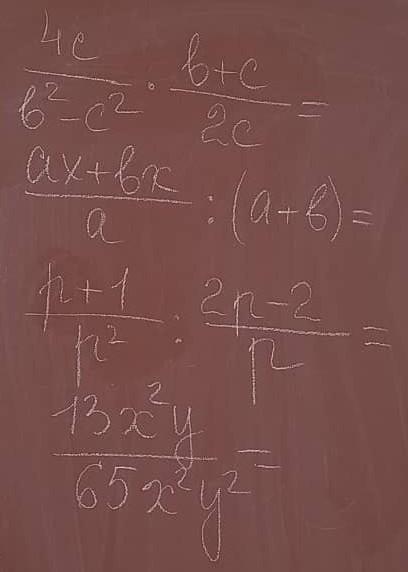 4c/(b²-c²) · (b+c)/2c =
(ax+bx)/a : (a+b) =
(p+1)/p² : (2p-2)/p =
13x²y/65x²y² =